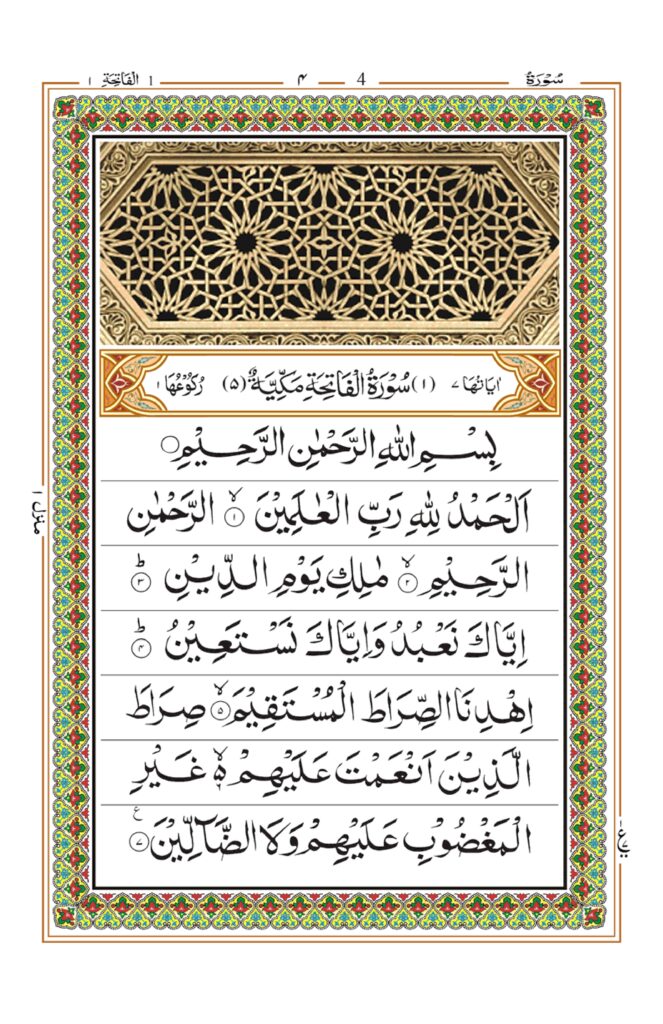 سُوْرَةُ 4 ۴ ١ اَلْفَاتِحَةِ ١
اٰيَاتُهَا ٧ (١) سُوْرَةُ الْفَاتِحَةِ مَكِّيَّةٌ (٥) رُكُوْعُهَا ١
بِسْمِ اللهِ الرَّحْمٰنِ الرَّحِيْمِ ۝
اَلْحَمْدُ لِلّٰهِ رَبِّ الْعٰلَمِيْنَ ۙ﴿١﴾ الرَّحْمٰنِ
الرَّحِيْمِ ۙ﴿٢﴾ مٰلِكِ يَوْمِ الدِّيْنِ ؕ﴿٣﴾
اِيَّاكَ نَعْبُدُ وَاِيَّاكَ نَسْتَعِيْنُ ؕ﴿۴﴾
اِهْدِنَا الصِّرَاطَ الْمُسْتَقِيْمَ ۙ﴿٥﴾ صِرَاطَ
الَّذِيْنَ اَنْعَمْتَ عَلَيْهِمْ ۙ۬ۦ غَيْرِ
الْمَغْضُوْبِ عَلَيْهِمْ وَلَا الضَّآلِّيْنَ ﴿٧﴾ ع
منزل ١